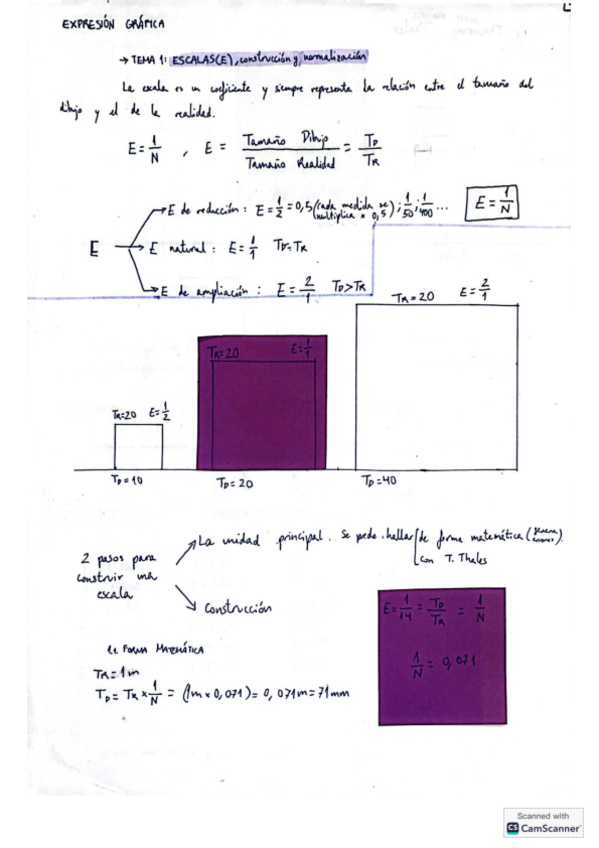 EXPRESIÓN GRÁFICA
→ TEMA 1: ESCALAS(E), construcción y normalización
La escala es un coeficiente y siempre representa la relación entre el tamaño del
dibujo y el de la realidad.
E = 1/N , E = Tamaño Dibujo / Tamaño Realidad = TD/TR
E de reducción: E = 1/2 = 0,5 (cada medida se multiplica × 0,5); 1/50; 1/400 ... E = 1/N
E → E natural: E = 1/1 TD=TR
E de ampliación: E = 2/1 TD>TR
TR=20 E=2/1
TR=20 E=1/1
TR=20 E=1/2
TD=10
TD=20
TD=40
La unidad principal.. Se puede hallar de forma matemática
con T. Thales
2 pasos para
construir una
escala
Construcción
E=1/14 = TD/TR = 1/N
1/N = 0,071
1.1. FORMA MATEMÁTICA
TR=1m
TD = TR × 1/N = (1m × 0,071) = 0,071m = 71mm
Scanned with
CS CamScanner